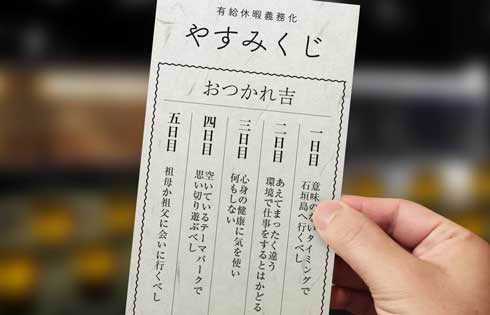 有給休暇義務化
やすみくじ
おつかれ吉
一日目
意味のないタイミングで
石垣島へ行くべし
二日目
あえてまったく違う
環境で仕事をするとはかどる
三日目
心身の健康に気を使い
何もしない
四日目
空いているテーマパークで
思い切り遊ぶべし
五日目
祖母か祖父に会いに行くべし